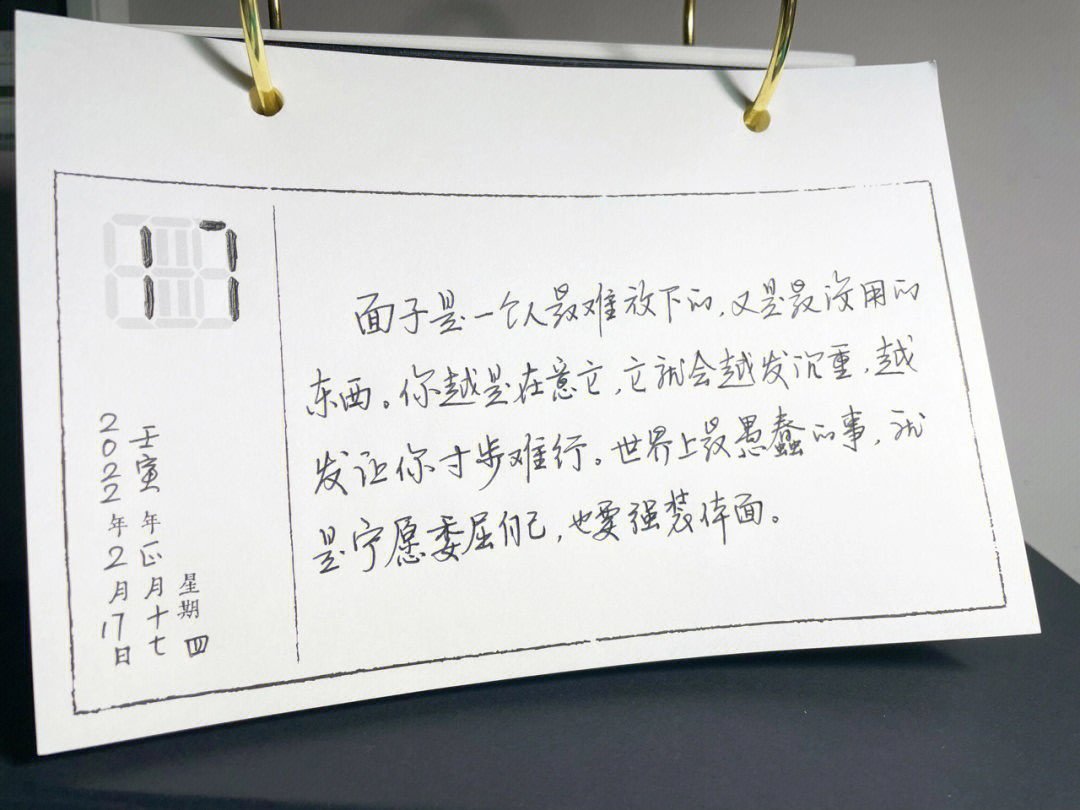 17
2022年2月17日
壬寅年正月十七
星期四
面子是一个人最难放下的,又是最没用的
东西。你越是在意它,它就会越发沉重,越
发让你寸步难行。世界上最愚蠢的事,就
是宁愿委屈自己,也要强装体面。